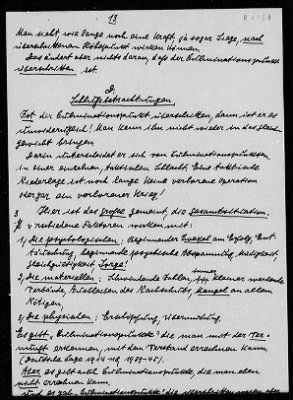 13
Man sieht, wie lange noch eine Kraft, ja sogar Siege, nach
überschrittenem Höhepunkt wirken können.
Das ändert aber nichts daran, dass der Culminationspunkt
überschritten ist.
Schlußbetrachtungen.
Ist der Culminationspunkt überschritten, dann ist er es
unwiderruflich! Man kann ihn nicht wieder in das Gleich-
gewicht bringen.
Darin unterscheidet er sich von Culminationspunkten
in einer einzelnen, taktischen Schlacht. Eine taktische
Niederlage ist noch lange keine verlorene Operation
oder gar ein verlorener Krieg!
Hier ist das große gemeint, die Gesamtsituation.
3 verschiedene Faktoren wirken mit:
1) Die psychologischen: Beginnender Zweifel am Erfolg, Ent-
täuschung, beginnende psychische Abspannung, Müdigkeit,
Gleichgültigkeit, Sorge!
2) Die materiellen: Schwindende Zahlen, immer kleiner werdende
Verbände, Ausbleiben des Nachschubs, Mangel an allem
Nötigen,
3) Die physischen: Erschöpfung, Übermüdung.
Es gibt "Culminationspunkte" die man mit der Ver-
nunft erkennen, mit dem Verstand errechnen kann
(Deutsche Lage 1914-18, 1939-45).
Aber es gibt auch Culminationspunkte, die man eben
nicht errechnen kann,